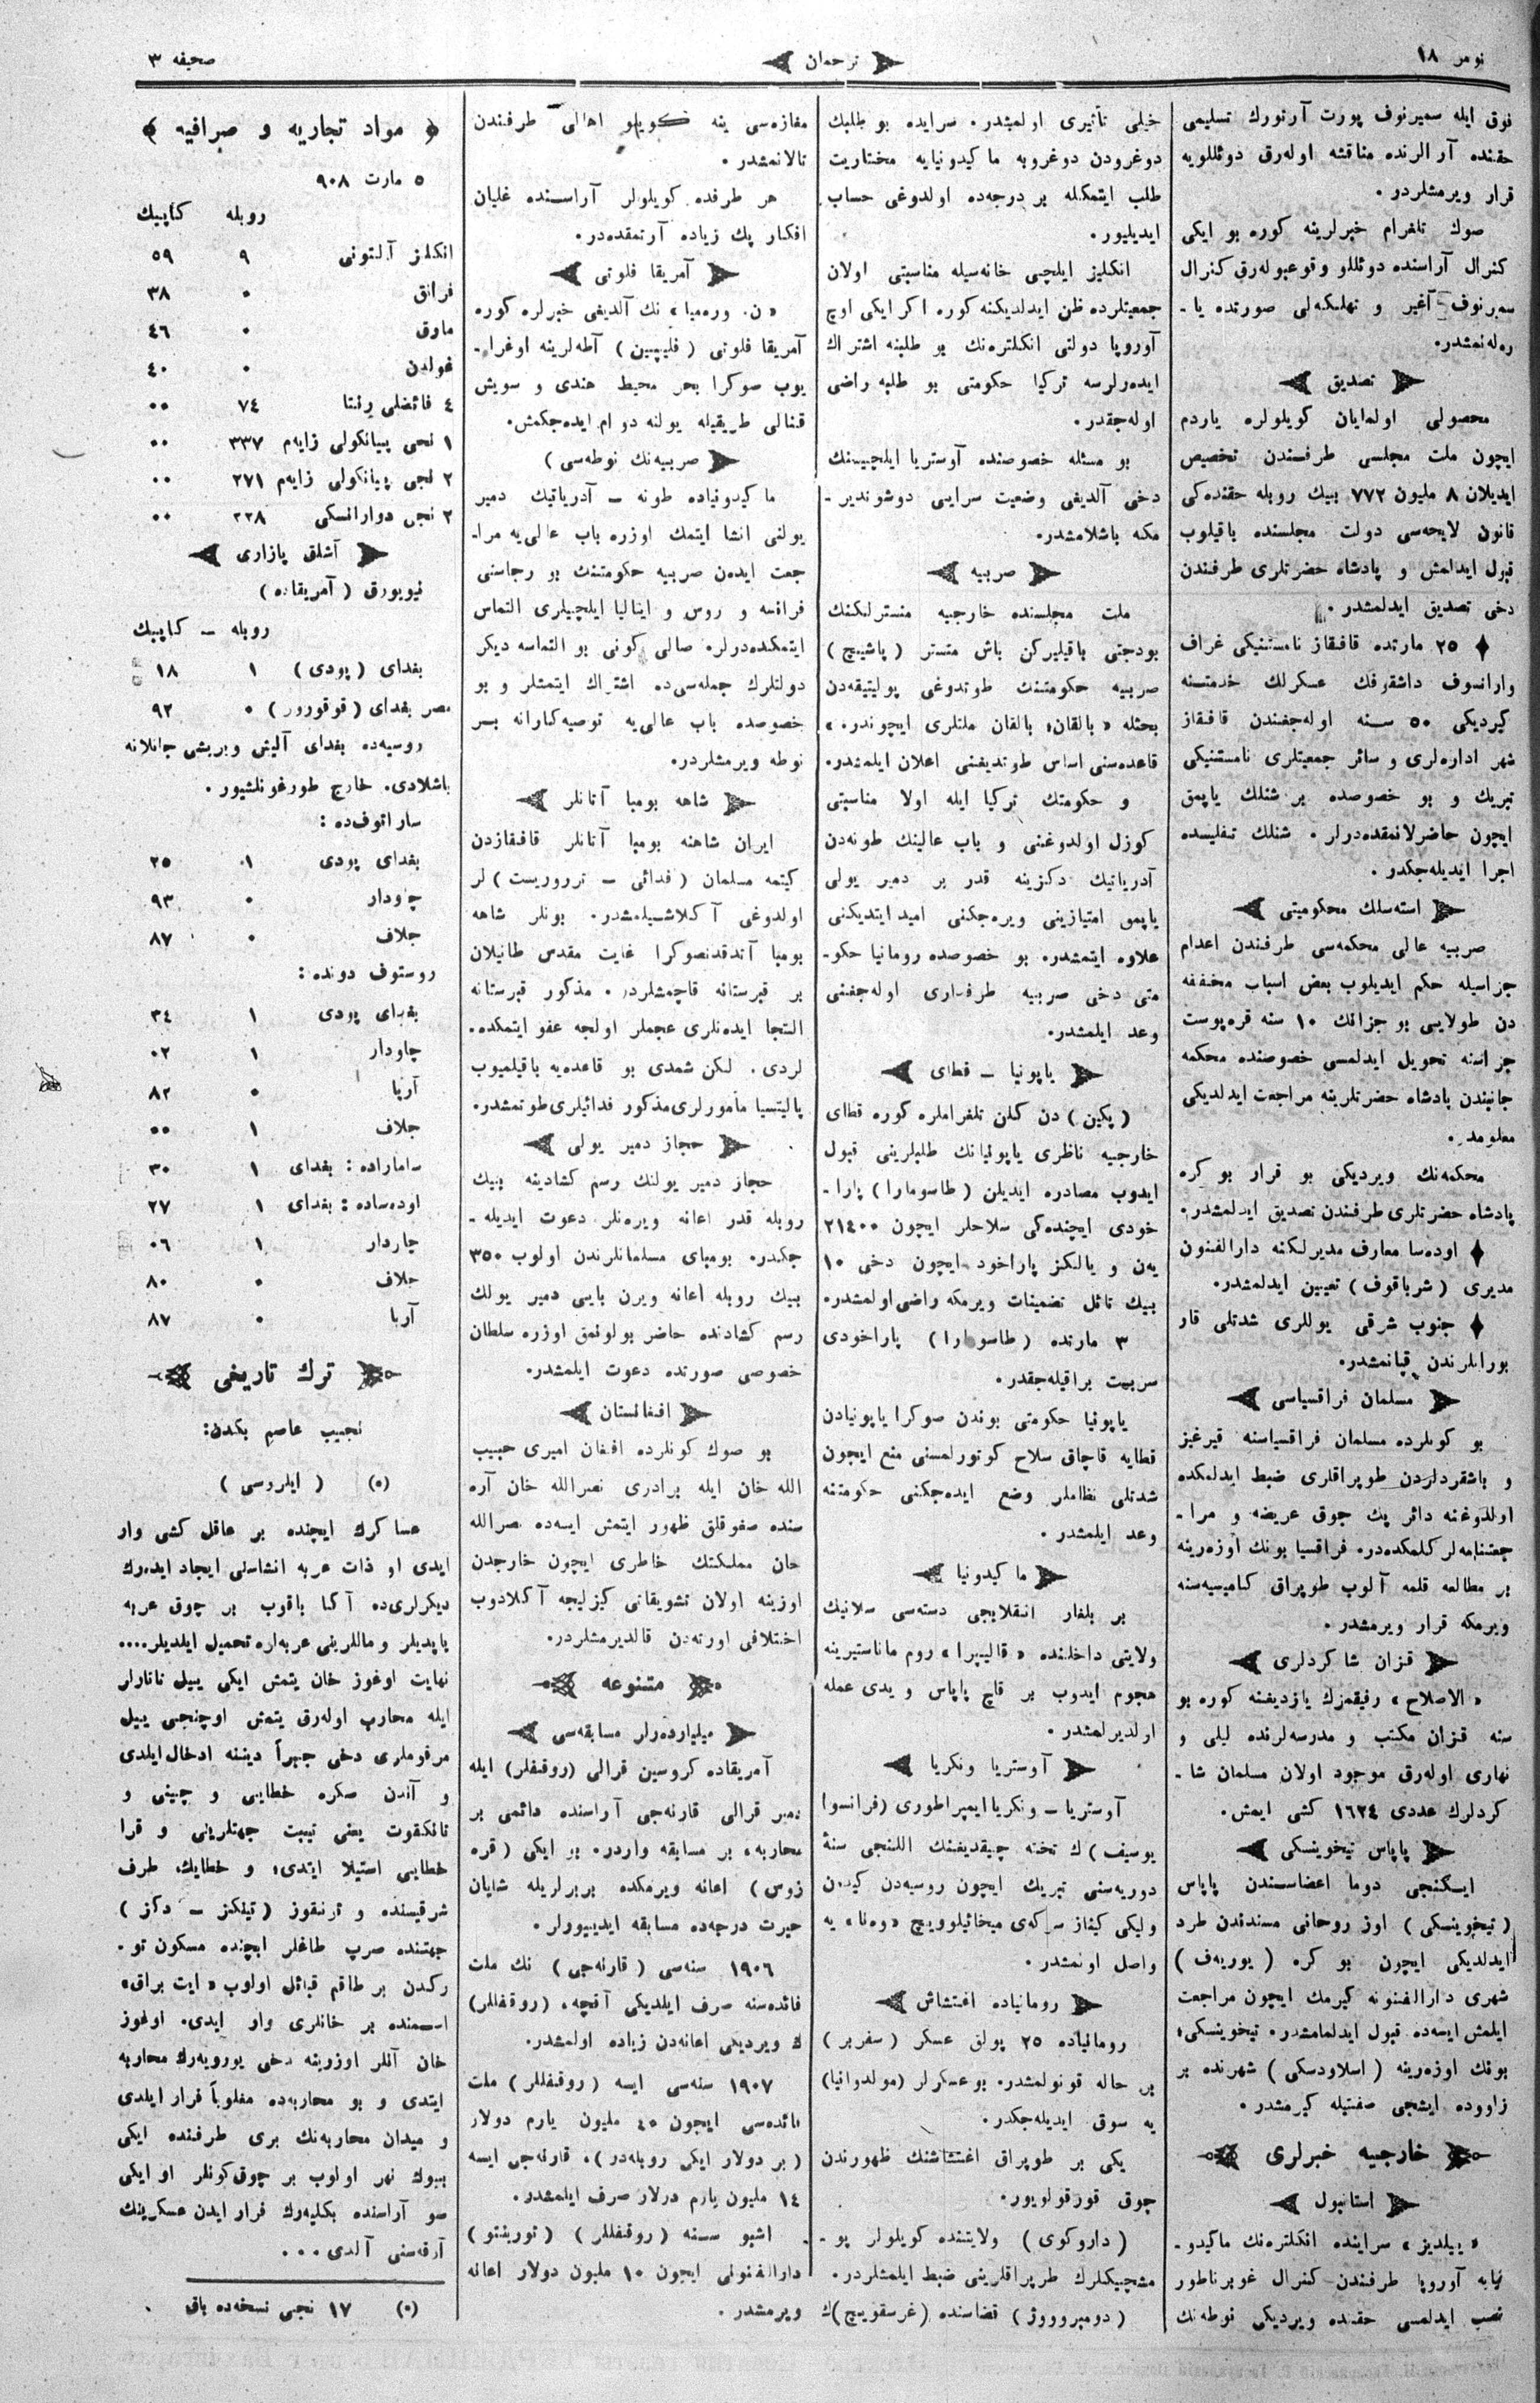 نومر ١٨
ترجمان
صحيفه ٣
فوق ايله سميرنوف پورت آرتورك تسليمى
حقنده آرالرنده مناقشه اولەرق دوئللويه
قرار ويرمشلردر.
صوك تلغرام خبرلرينه كوره بو ايكى
كنرال آراسنده دوئللو وقوعبولەرق كنرال
سميرنوف آغير و تهلكەلى صورتده يا-
رەلەنمشدر.
تصديق
محصولى اولەمايان كويلولره ياردم
ايچون ملت مجلسى طرفندن تخصيص
ايديلان ٨ مليون ٧٧٢ بيك روبله حقندەكى
قانون لايحەسى دولت مجلسنده باقيلوب
قبول ايدلمش و پادشاه حضرتلرى طرفندن
دخى تصديق ايدلمشدر.
٢٥ مارتده قافقاز نامستنيكى غراف
وارانسوف داشقوفك عسكرلك خدمتنه
كيرديكى ٥٠ سنه اولەجغندن قافقاز
شهر ادارەلرى و سائر جمعيتلرى نامستنيكى
تبريك و بو خصوصده بر شنلك ياپمق
ايچون حاضرلانمقدەدرلر. شنلك تفليسده
اجرا ايديلەجكدر.
استەسلك محكوميتى
صربيه عالى محكمەسى طرفندن اعدام
جزاسيله حكم ايديلوب بعض اسباب مخففه
دن طولايى بو جزانك ١٠ سنه قرەپوست
جزاسنه تحويل ايدلمسى خصوصنده محكمه
جانبندن پادشاه حضرتلرينه مراجعت ايدلديكى
معلومدر.
محكمەنك ويرديكى بو قرار بو كره
پادشاه حضرتلرى طرفندن تصديق ايدلمشدر.
اودەسا معارف مديرلكنه دارالفنون
مديرى (شرباقوف) تعيين ايدلمشدر.
جنوب شرقى يوللرى شدتلى قار
بورانلرندن قپانمشدر.
مسلمان فراقسياسى
بو كونلرده مسلمان فراقسياسنه قيرغيز
و باشقردلردن طوپراقلرى ضبط ايدلمكده
اولدوغنه دائر پك چوق عريضه و مرا-
جعتنامەلر كلمكدەدر. فراقسيا بونك اوزەرينه
بر مطالعه قلمه آلوب طوپراق كاميسيەسنه
ويرمكه قرار ويرمشدر.
قزان شاكردلرى
«الاصلاح» رفيقمزك يازديغنه كوره بو
سنه قزان مكتب و مدرسەلرنده ليلى و
نهارى اولەرق موجود اولان مسلمان شا-
كردلرك عددى ١٦٢٤ كشى ايمش.
پاپاس تيخوينسكى
ايكنجى دوما اعضاسندن پاپاس
(تيخوينسكى) اوز روحانى مسندندن طرد
ايدلديكى ايچون بو كره (يوريەف)
شهرى دارالفنونه كيرمك ايچون مراجعت
ايلمش ايسەده قبول ايدلمامشدر. تيخوينسكى؛
بونك اوزەرينه (اسلاودسكى) شهرنده بر
زاووده ايشجى صفتيله كيرمشدر.
خارجيه خبرلرى
استانبول
«ييلديز» سراينده انكلترەنك ماكيدو-
نيايه آوروپا طرفندن كنرال غوبرناطور
نصب ايدلمسى حقنده ويرديكى نوطەنك
خيلى تأثيرى اولمشدر. سرايده بو طلبك
دوغرودن دوغرويه ماكيدونيايه مختاريت
طلب ايتمكله بر درجەده اولدوغى حساب
ايديليور.
انكليز ايلچى خانەسيله مناسبتى اولان
جمعيتلرده ظن ايدلديكنه كوره اكر ايكى اوچ
آوروپا دولتى انكلترەنك بو طلبنه اشتراك
ايدەرلرسه تركيا حكومتى بو طلبه راضى
اولەجقدر.
بو مسئله خصوصنده آوستريا ايلچيسنك
دخى آلديغى وضعيت سرايى دوشوندير-
مكه باشلامشدر.
صربيه
ملت مجلسنده خارجيه منسترلكنك
بودجتى باقيليركن باش منستر (پاشيچ)
صربيه حكومتنك طوتدوغى پوليتيقەدن
بحثله «بالقان؛ بالقان ملتلرى ايچوندر.»
قاعدەسنى اساس طوتديغنى اعلان ايلمشدر.
و حكومتك تركيا ايله اولا مناسبتى
كوزل اولدوغنى و باب عالينك طونەدن
آدرياتيك دكزينه قدر بر دمير يولى
ياپمق امتيازينى ويرەجكنى اميد ايتديكنى
علاوه ايتمشدر. بو خصوصده رومانيا حكو-
متى دخى صربيه طرفدارى اولەجغنى
وعد ايلمشدر.
ياپونيا – قطاى
(پكين) دن كلن تلغرافلره كوره قطاى
خارجيه ناظرى ياپونيانك طلبلرينى قبول
ايدوب مصادره ايديلن (طاسومارا) پارا-
خودى ايچندەكى سلاحلر ايچون ٢١٤٠٠
يەن و يالكز پاراخود ايچون دخى ١٠
بيك تائل تضمينات ويرمكه راضى اولمشدر.
٣ مارتده (طاسومارا) پاراخودى
سربست براقيلەجقدر.
ياپونيا حكومتى بوندن صوكرا ياپونيادن
قطايه قاچاق سلاح كوتورلمسنى منع ايچون
شدتلى نظاملر وضع ايدەجكنى حكومتنه
وعد ايلمشدر.
ماكيدونيا
بر بلغار انقلابجى دستەسى سلانيك
ولايتى داخلنده «قاليپرا» روم ماناستيرينه
هجوم ايدوب بر قاچ پاپاس و يدى عمله
اولديرلمشدر.
آوستريا ونكريا
آوستريا – ونكريا ايمپراطورى (فرانسوا
يوسيف) ك تخته چيقديغنك اللنجى سنۀ
دوريەسنى تبريك ايچون روسيەدن كيدن
وليكى كيناز سركەى ميخائيلوويچ «وەنا» يه
واصل اونمشدر.
رومانياده اغتشاش
رومانياده ٢٥ پولق عسكر (سفربر)
بر حاله قونولمشدر. بو عسكرلر (مولدوانيا)
يه سوق ايديلەجكدر.
يكى بر طوپراق اغتشاشنك ظهورندن
چوق قورقولويور.
(داروكوى) ولايتنده كويلولر پو-
مشچيكلرك طوپراقلرينى ضبط ايلمشلردر.
(دومبروووژ) قضاسنده (غرسقوويچ)ك
مغازەسى ينه كويلو اهالى طرفندن
تالانمشدر.
هر طرفده كويلولر آراسنده غليان
افكار پك زياده آرتمقدەدر.
آمريقا فلوتى
«ن. ورەميا» نك آلديغى خبرلره كوره
آمريقا فلوتى (فليپين) آطەلرينه اوغرا-
يوب صوكرا بحر محيط هندى و سويش
قنالى طريقيله يولنه دوام ايدەجكمش.
صربيەنك نوطەسى)
ماكيدونياده طونه – آدرياتيك دمير
يولنى انشا ايتمك اوزره باب عالىيه مرا-
جعت ايدەن صربيه حكومتنك بو رجاسنى
فرانسه و روس و ايتاليا ايلچيلرى التماس
ايتمكدەدرلر. صالى كونى بو التماسه ديكر
دولتلرك جملەسىده اشتراك ايتمشلر و بو
خصوصده باب عالىيه توصيەكارانه بر
نوطه ويرمشلردر.
شاهه بومبا آتانلر
ايران شاهنه بومبا آتانلر قافقازدن
كيتمه مسلمان (فدائى – ترروريست)لر
اولدوغى آكلاشيلمشدر. بونلر شاهه
بومبا آتدقدنصوكرا غايت مقدس طانيلان
بر قبرستانه قاچمشلردر. مذكور قبرستانه
التجا ايدەنلرى عجملر اولجه عفو ايتمكده-
لردى. لكن شمدى بو قاعدەيه باقيلميوب
پاليتسيا مأمورلرى مذكور فدائيلرى طوتمشدر.
حجاز دمير يولى
حجاز دمير يولنك رسم كشادينه بيك
روبله قدر اعانه ويرەنلر دعوت ايديلە-
جكدر. بومباى مسلمانلرندن اولوب ٣٥٠
بيك روبله اعانه ويرن بايى دمير يولك
رسم كشادنده حاضر بولونمق اوزره سلطان
خصوصى صورتده دعوت ايلمشدر.
افغانستان
بو صوك كونلرده افغان اميرى حبيب
الله خان ايله برادرى نصرالله خان آره
سنده صغوقلق ظهور ايتمش ايسەده نصرالله
خان مملكتك خاطرى ايچون خارجدن
اوزينه اولان تشويقاتى كيزليجه آكلادوب
اختلافى اورتەدن قالديرمشلردر.
متنوعه
ميلياردەرلر مسابقەسى
آمريقاده كروسين قرالى (روقفلر) ايله
دمير قرالى قارنەجى آراسنده دائمى بر
محاربه، بر مسابقه واردر. بو ايكى (قره
زوس) اعانه ويرمكده بربرلريله شايان
حيرت درجەده مسابقه ايدييورلر.
١٩٠٦ سنەسى (قارنەجى) نك ملت
فائدەسنه صرف ايلديكى آقچه، (روقفللر)
ك ويرديكى اعانەدن زياده اولمشدر.
١٩٠٧ سنەسى ايسه (روقفللر) ملت
فائدەسى ايچون ٤٥ مليون يارم دولار
(بر دولار ايكى روبلەدر)، قارنەجى ايسه
١٤ مليون يارم دولار صرف ايلمشدر.
اشبو سنه (روقفللر) (تورينتو)
دارالفنونى ايچون ١٠ مليون دولار اعانه
ويرمشدر.
مواد تجاريه و صرافيه
٥ مارت ٩٠٨
روبله كاپيك
انكلز آلتونى ٩ ٥٩
فرانق ٠ ٣٨
مارق ٠ ٤٦
غولدن ٠ ٤٠
٤ فائضلى رنتا ٧٤ ٠٠
١ نجى پيانكولى زايەم ٣٣٧ ٠٠
٢ نجى پيانكولى زايەم ٢٧١ ٠٠
٣ نجى دوارانسكى ٢٢٨ ٠٠
آشلق پازارى
نيويورق (آمريقاده)
روبله – كاپيك
بغداى (پودى) ١ ١٨
مصر بغداى (قوقوروز) ٠ ٩٢
روسيەده بغداى آليش ويريشى جانلانه
باشلادى. خارج طورغونلشيور.
ساراتوفده:
بغداى پودى ١ ٢٥
چاودار ٠ ٩٣
جلاف ٠ ٨٧
روستوف دونده:
بغداى پودى ١ ٣٤
چاودار ١ ٠٢
آرپا ٠ ٨٢
جلاف ١ ٠٠
ساماراده: بغداى ١ ٣٠
اودەساده: بغداى ١ ٢٧
چاردار ١ ٠٦
جلاف ٠ ٨٠
آرپا ٠ ٨٧
ترك تاريخى
نجيب عاصم بكدن:
(٥) (ايلروسى)
عساكرك ايچنده بر عاقل كشى وار
ايدى او ذات عربه انشاسنى ايجاد ايدەرك
ديكرلرىده آكا باقوب بر چوق عربه
ياپديلر و ماللرينى عربەلره تحميل ايلديلر....
نهايت اوغوز خان يتمش ايكى ييل تاتارلر
ايله محارب اولەرق يتمش اوچنجى ييل
مرقوملرى دخى جبراً ديننه ادخال ايلدى
و آندن سكره خطايى و چينى و
تانكقوت يعنى تيبت جهتلرينى و قرا
خطايى استيلا ايتدى؛ و خطايك طرف
شرقيسنده و ترنقوز (تينكز – دكز)
جهتنده صرپ طاغلر ايچنده مسكون تو-
ركدن بر طاقم قبائل اولوب «ايت براق»
اسمنده بر خانلرى وار ايدى. اوغوز
خان آنلر اوزرينه دخى يورويەرك محاربه
ايتدى و بو محاربەده مغلوباً فرار ايلدى
و ميدان محاربەنك برى طرفنده ايكى
بيوك نهر اولوب بر چوق كونلر او ايكى
صو آراسنده بكليەرك فرار ايدن عسكرينك
آرقەسنى آلدى...
(٥) ١٧ نجى نسخەده باق